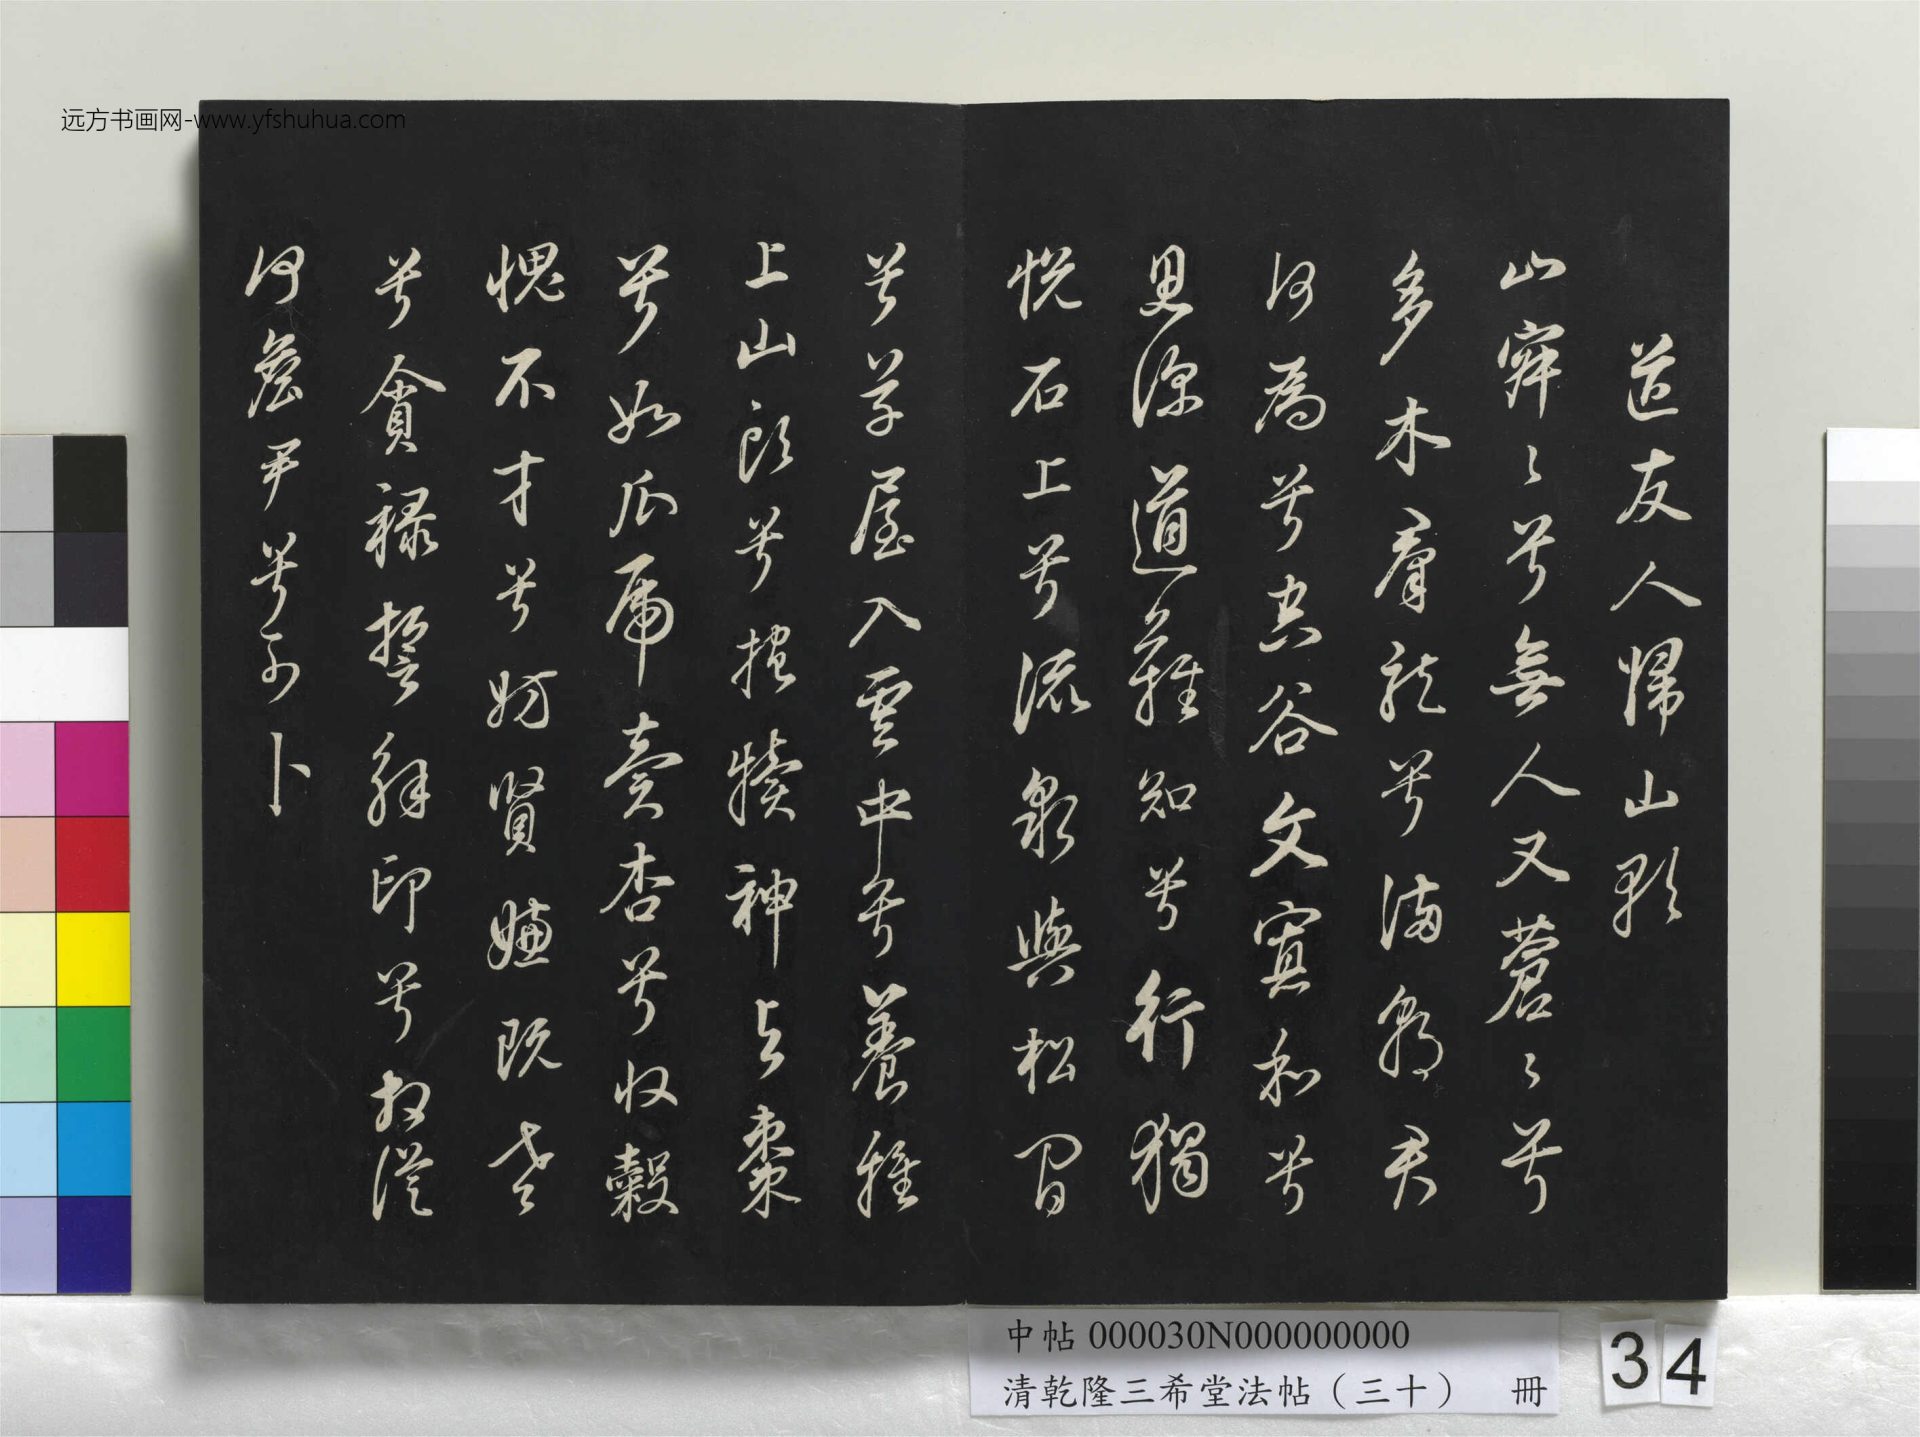 远方书画网-www.yfshuhua.com
送友人歸山歌
山寂〻兮無人又蒼〻兮
多木羣龍兮滿朝君
何為兮空谷文寡和兮
思深道難知兮行獨
悅石上兮流泉與松間
兮草屋入雲中兮養雞
上山頭兮抱犢神与棗
兮如瓜虎賣杏兮收穀
愧不才兮妨賢嫌既老
兮貪祿誓解印兮相從
何詹尹兮可卜
中帖 000030N000000000
清乾隆三希堂法帖（三十） 冊
34